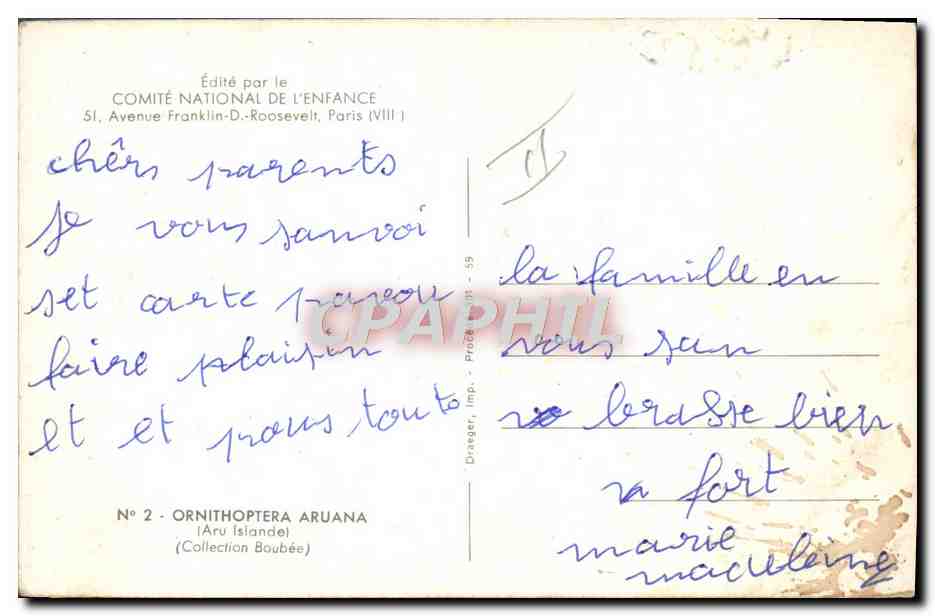 Édité par le
COMITÉ NATIONAL DE L'ENFANCE
51, Avenue Franklin-D.-Roosevelt, Paris (VIII)
chêrs parents
je vous sanvoi
set carte pavou
faire plaisin
et et pous toute
N° 2 - ORNITHOPTERA ARUANA
(Aru Islande)
(Collection Boubée)
Draeger, Imp. - Procédé 301 - 59
CPAPHIL
la famille en
vous san
brasse bien
fort
marie
madeleine